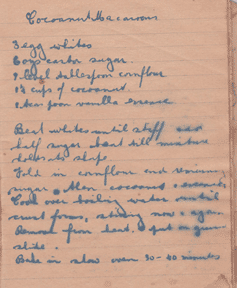 Cocoanut Macaroons
3 egg whites
6 ozs castor sugar
1 level tablespoon cornflour
1½ cups of cocoanut
1 teaspoon vanilla essence
Beat whites until stiff add
half sugar & beat till mixture
holds its shape
Fold in cornflour and remaining
sugar, then cocoanut & essence
Cook over boiling water until
crust forms, stirring now & again
Remove from heat & put on greased
slide.
Bake in slow oven 30 - 40 minutes